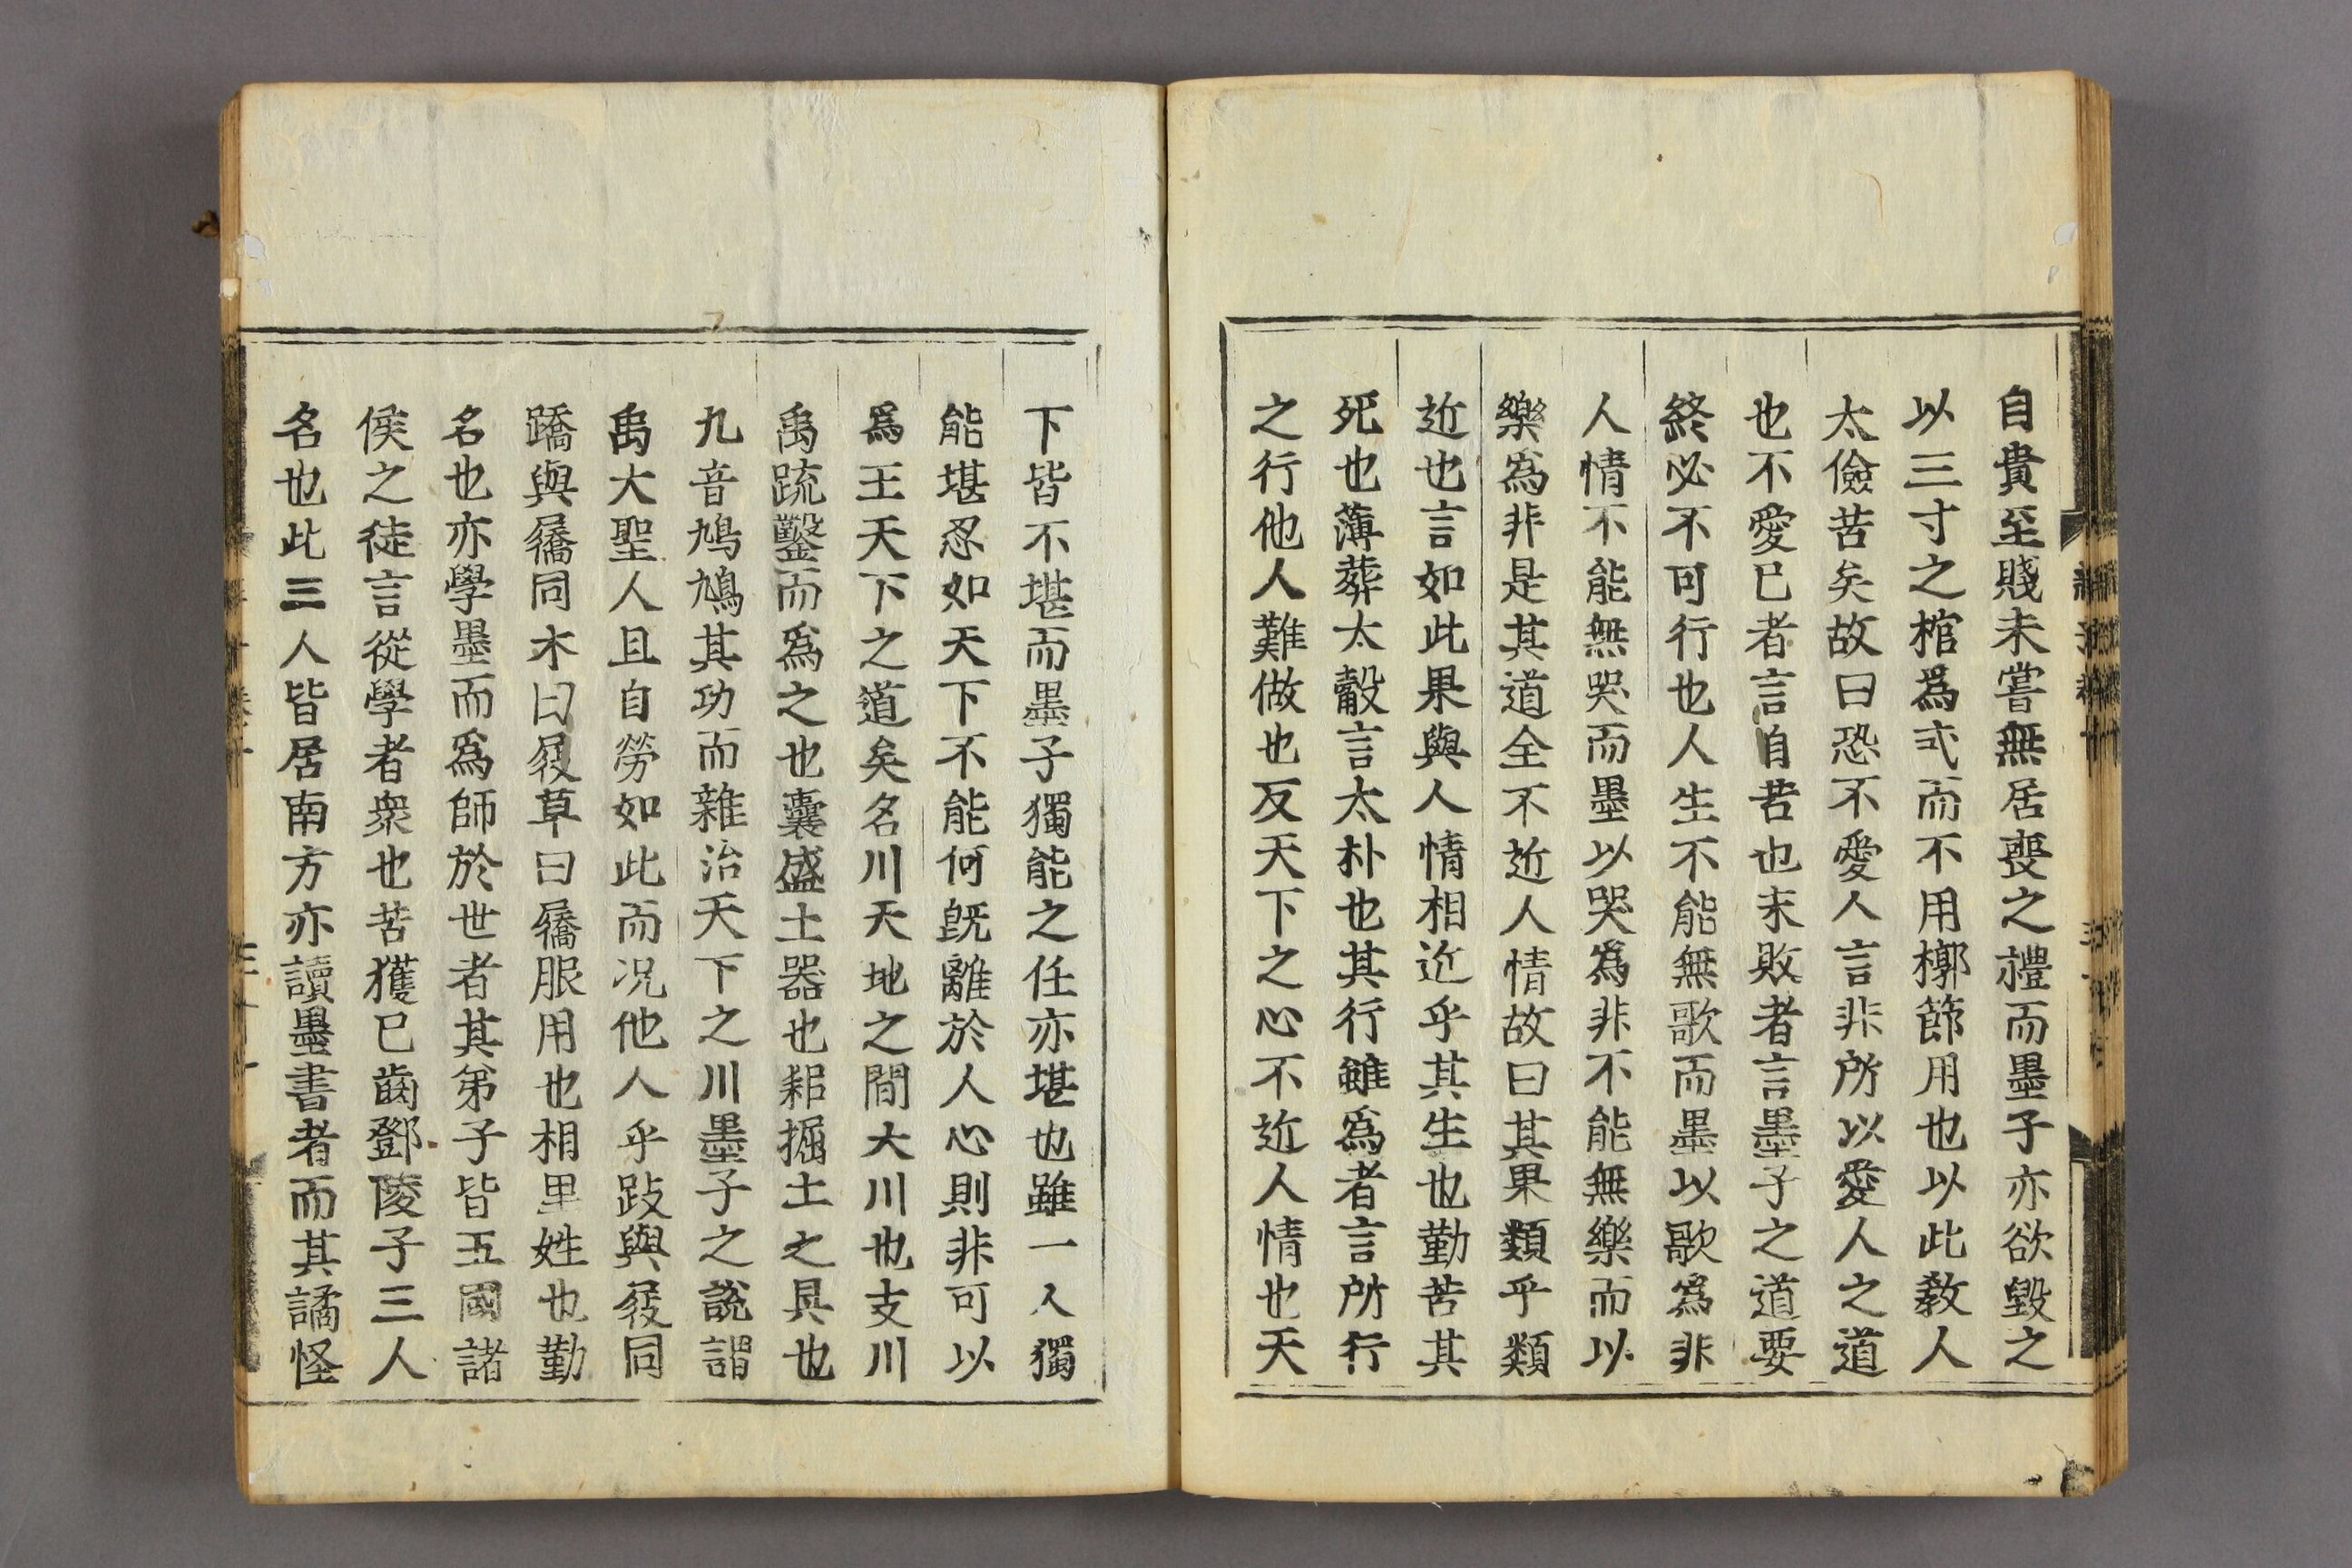 自貴至賤未嘗無居喪之禮而墨子亦欲毀之
以三寸之棺爲式而不用槨節用也以此敎人
太儉苦矣故曰恐不愛人言非所以愛人之道
也不愛已者言自苦也未敗者言墨子之道要
終必不可行也人生不能無歌而墨以歌爲非
人情不能無哭而墨以哭爲非不能無樂而以
樂爲非是其道全不近人情故曰其果類乎類
近也言如此果與人情相近乎其生也勤苦其
死也薄葬太觳言太朴也其行雖爲者言所行
之行他人難做也反天下之心不近人情也天
下皆不堪而墨子獨能之任亦堪也雖一人獨
能堪忍如天下不能何旣離於人心則非可以
爲王天下之道矣名川天地之間大川也支川
禹疏鑿而爲之也囊盛土器也耜掘土之具也
九音鳩鳩其功而雜治天下之川墨子之說謂
禹大聖人且自勞如此而况他人乎跂與屐同
蹻與屩同木曰屐草曰屩服用也相里姓也勤
名也亦學墨而爲師於世者其弟子皆五國諸
侯之徒言從學者衆也苦獲已齒鄧陵子三人
名也此三人皆居南方亦讀墨書者而其譎怪